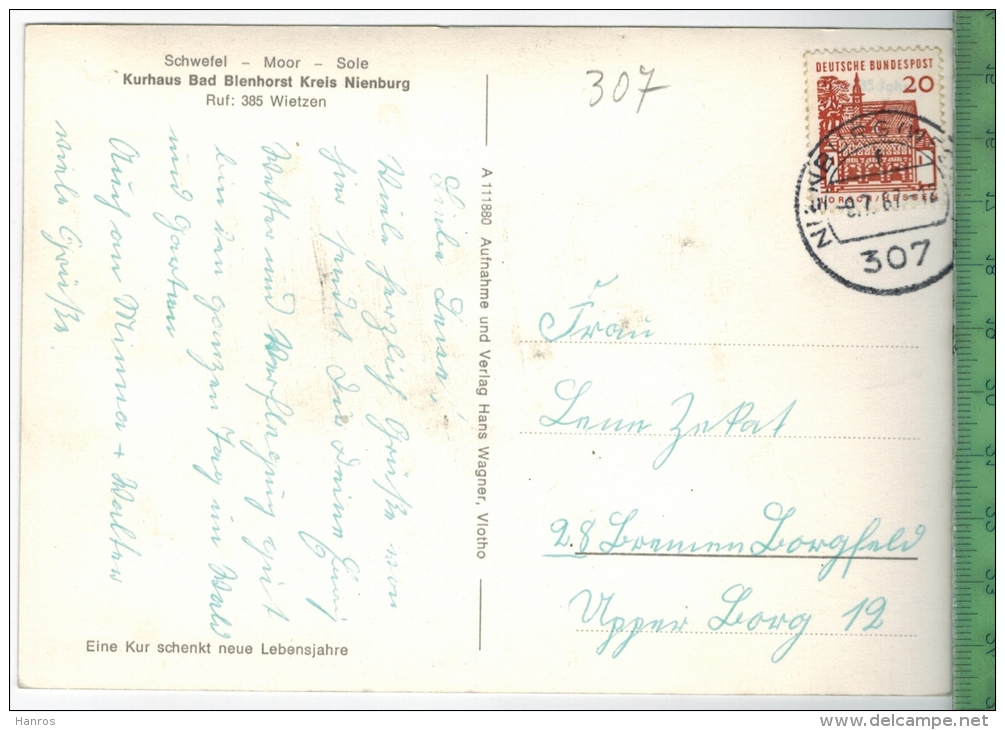 Schwefel – Moor – Sole
Kurhaus Bad Blenhorst Kreis Nienburg
Ruf: 385 Wietzen
307
DEUTSCHE BUNDESPOST
20
LORSCH/HESSEN
NIENBURG (WESER)
1
-9.7.67
307
Liebe Lene,
Viele herzliche Grüße von
hier sendet Dir Deine
Wetter und Verpflegung gut
bin den ganzen Tag im Wald
und Garten
Auch an Minna + Walter
viele Grüße.
A 111880 Aufnahme und Verlag Hans Wagner, Vlotho
Frau
Lene Zekat
28 Bremen Borgfeld
Upper Borg 12
Eine Kur schenkt neue Lebensjahre
Hanros
www.delcampe.net